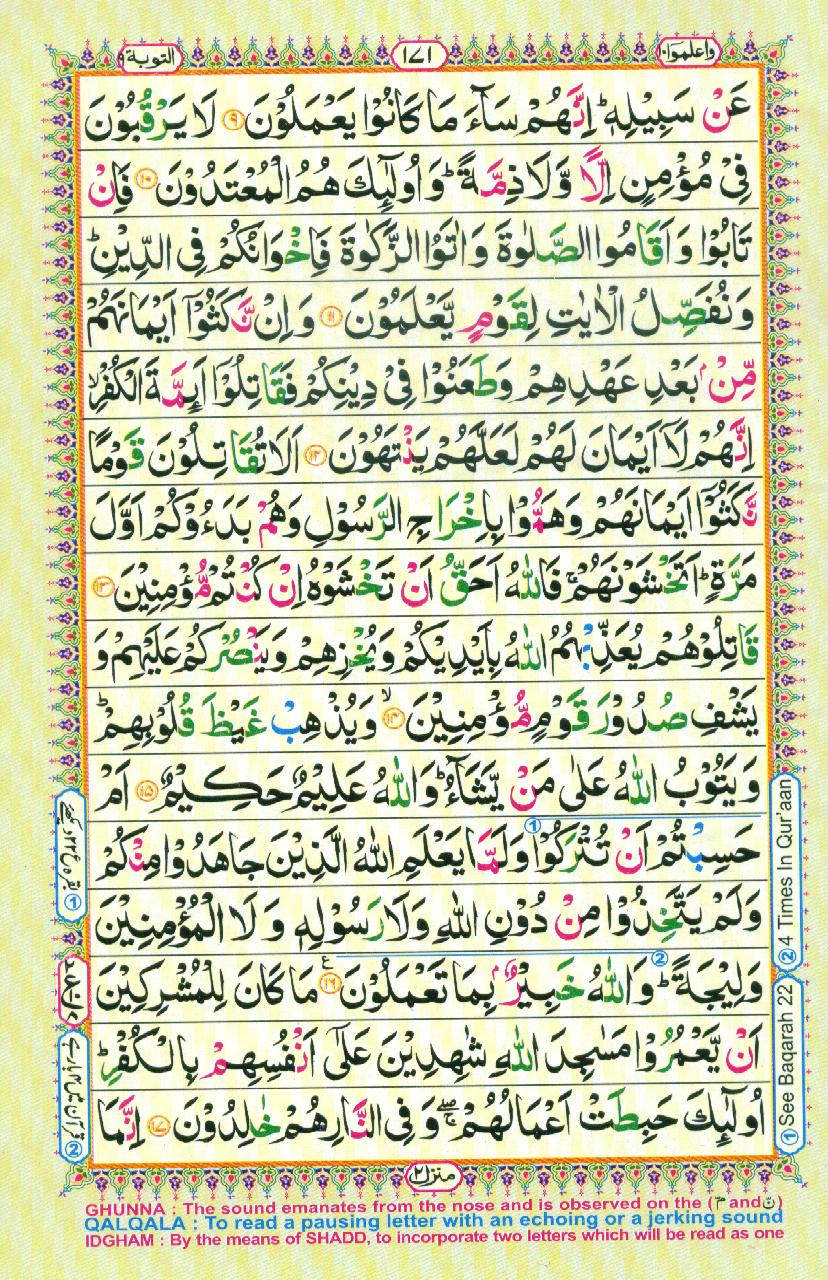 واعلموا ١٠
١٧١
التوبة ٩
عَنْ سَبِيْلِهٖ ؕ اِنَّهُمْ سَآءَ مَا كَانُوْا يَعْمَلُوْنَ ﴿۹﴾ لَا يَرْقُبُوْنَ
فِيْ مُؤْمِنٍ اِلًّا وَّلَا ذِمَّةً ؕ وَاُولٰٓئِكَ هُمُ الْمُعْتَدُوْنَ ﴿۱۰﴾ فَاِنْ
تَابُوْا وَاَقَامُوا الصَّلٰوةَ وَاٰتَوُا الزَّكٰوةَ فَاِخْوَانُكُمْ فِي الدِّيْنِ ؕ
وَنُفَصِّلُ الْاٰيٰتِ لِقَوْمٍ يَّعْلَمُوْنَ ﴿۱۱﴾ وَاِنْ نَّكَثُوْۤا اَيْمَانَهُمْ
مِّنْۢ بَعْدِ عَهْدِهِمْ وَطَعَنُوْا فِيْ دِيْنِكُمْ فَقَاتِلُوْۤا اَئِمَّةَ الْكُفْرِ ۙ
اِنَّهُمْ لَاۤ اَيْمَانَ لَهُمْ لَعَلَّهُمْ يَنْتَهُوْنَ ﴿۱۲﴾ اَلَا تُقَاتِلُوْنَ قَوْمًا
نَّكَثُوْۤا اَيْمَانَهُمْ وَهَمُّوْا بِاِخْرَاجِ الرَّسُوْلِ وَهُمْ بَدَءُوْكُمْ اَوَّلَ
مَرَّةٍ ؕ اَتَخْشَوْنَهُمْ ۚ فَاللّٰهُ اَحَقُّ اَنْ تَخْشَوْهُ اِنْ كُنْتُمْ مُّؤْمِنِيْنَ ﴿۱۳﴾
قَاتِلُوْهُمْ يُعَذِّبْهُمُ اللّٰهُ بِاَيْدِيْكُمْ وَيُخْزِهِمْ وَيَنْصُرْكُمْ عَلَيْهِمْ وَ
يَشْفِ صُدُوْرَ قَوْمٍ مُّؤْمِنِيْنَ ۙ ﴿۱۴﴾ وَيُذْهِبْ غَيْظَ قُلُوْبِهِمْ ؕ
وَيَتُوْبُ اللّٰهُ عَلٰى مَنْ يَّشَآءُ ؕ وَاللّٰهُ عَلِيْمٌ حَكِيْمٌ ﴿۱۵﴾ اَمْ
حَسِبْتُمْ اَنْ تُتْرَكُوْا وَلَمَّا يَعْلَمِ اللّٰهُ الَّذِيْنَ جَاهَدُوْا مِنْكُمْ
وَلَمْ يَتَّخِذُوْا مِنْ دُوْنِ اللّٰهِ وَلَا رَسُوْلِهٖ وَلَا الْمُؤْمِنِيْنَ
وَلِيْجَةً ؕ وَاللّٰهُ خَبِيْرٌۢ بِمَا تَعْمَلُوْنَ ﴿۱۶﴾ ع مَا كَانَ لِلْمُشْرِكِيْنَ
اَنْ يَّعْمُرُوْا مَسٰجِدَ اللّٰهِ شٰهِدِيْنَ عَلٰۤى اَنْفُسِهِمْ بِالْكُفْرِ ؕ
اُولٰٓئِكَ حَبِطَتْ اَعْمَالُهُمْ ۖۚ وَفِي النَّارِ هُمْ خٰلِدُوْنَ ﴿۱۷﴾ اِنَّمَا
② 4 Times In Qur'aan
① See Baqarah 22
منزل ٢
GHUNNA : The sound emanates from the nose and is observed on the (مّ and نّ)
QALQALA : To read a pausing letter with an echoing or a jerking sound
IDGHAM : By the means of SHADD, to incorporate two letters which will be read as one